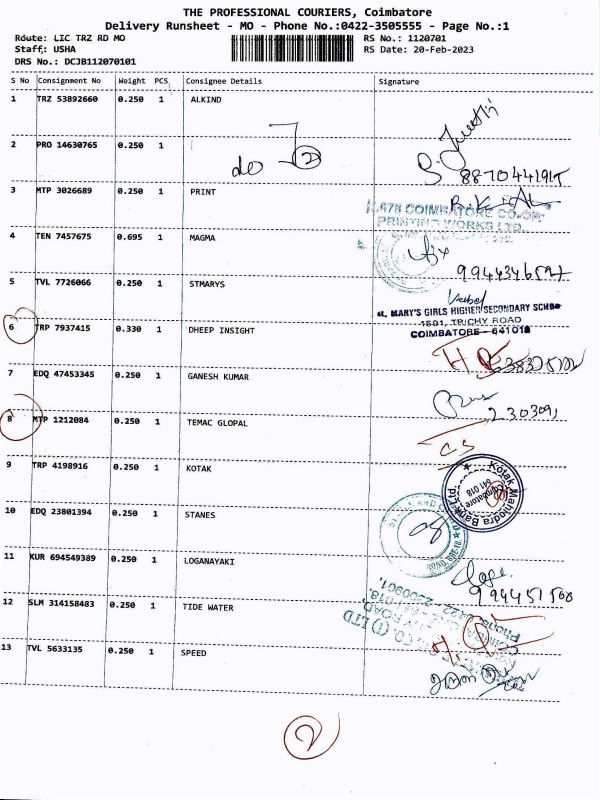 THE PROFESSIONAL COURIERS, Coimbatore
Delivery Runsheet - MO - Phone No.:0422-3505555 - Page No.:1
Route: LIC TRZ RD MO
Staff: USHA
DRS No.: DCJB112070101
RS No.: 1120701
RS Date: 20-Feb-2023
S No Consignment No Weight PCS Consignee Details Signature
1 TRZ 53892660 0.250 1 ALKIND
2 PRO 14630765 0.250 1
do 2
3 MTP 3026689 0.250 1 PRINT
COIMBATORE CO-OP
PRINTING WORKS LTD.
4 TEN 7457675 0.695 1 MAGMA
5 TVL 7726066 0.250 1 STMARYS
ST. MARY'S GIRLS HIGHER SECONDARY SCHOOL
1691, TRICHY ROAD
COIMBATORE - 641018
6 TRP 7937415 0.330 1 DHEEP INSIGHT
7 EDQ 47453345 0.250 1 GANESH KUMAR
2303091
8 MTP 1212084 0.250 1 TEMAC GLOPAL
9 TRP 4198916 0.250 1 KOTAK
Kotak Mahindra Bank
Coimbatore
641 018
10 EDQ 23801394 0.250 1 STANES
11 KUR 694549389 0.250 1 LOGANAYAKI
12 SLM 314158483 0.250 1 TIDE WATER
13 TVL 5633135 0.250 1 SPEED
2